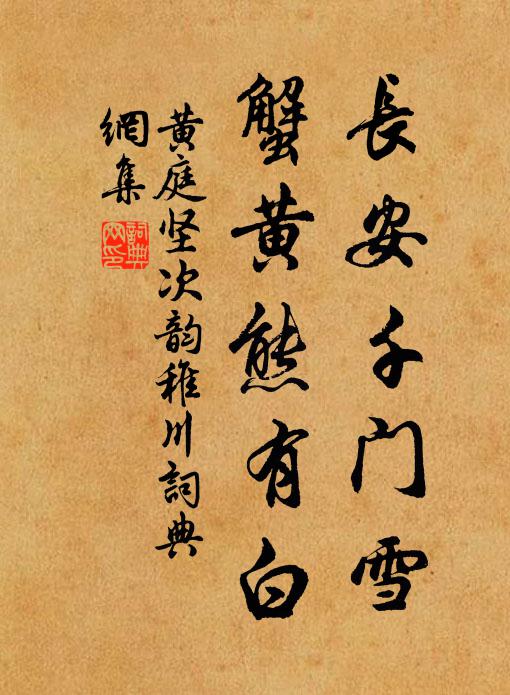 長安千门雪
蟹黄熊有白
黄庭坚次韵稚川詞典
網集
詞典
网印